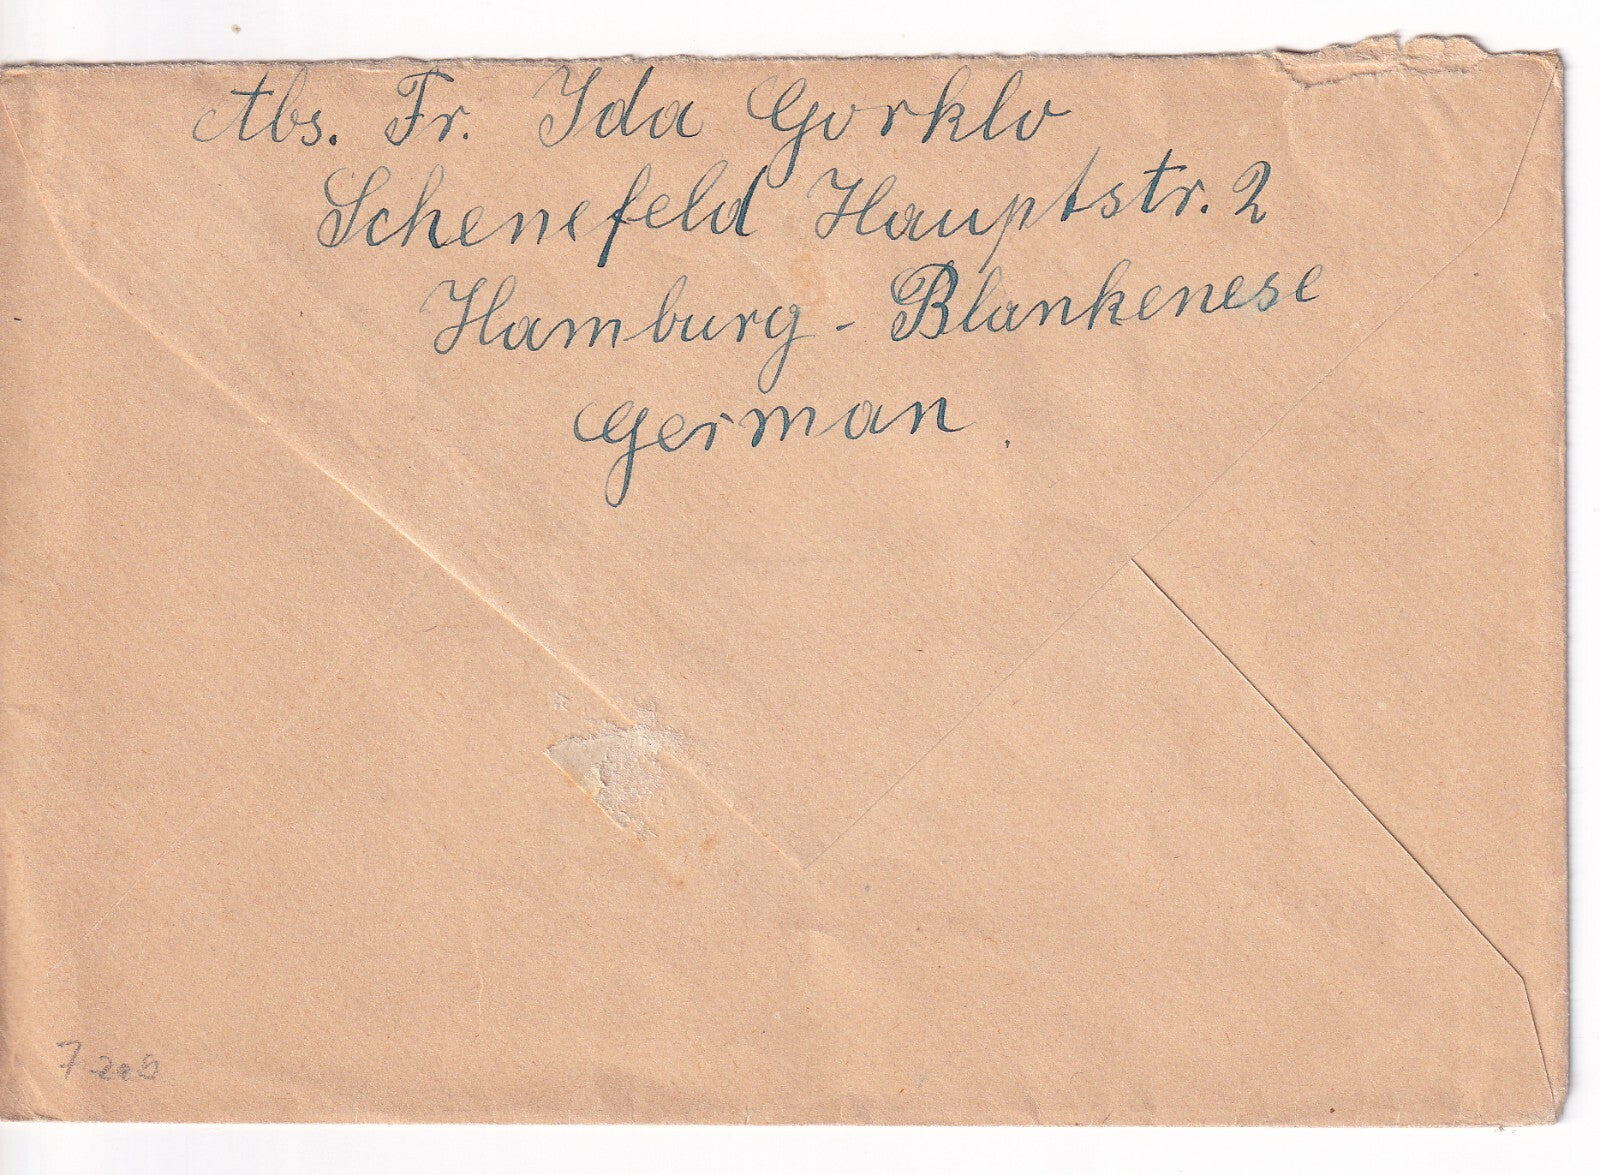 Abs. Fr. Ida Gorklo
Schenefeld Hauptstr. 2
Hamburg - Blankenese
German.